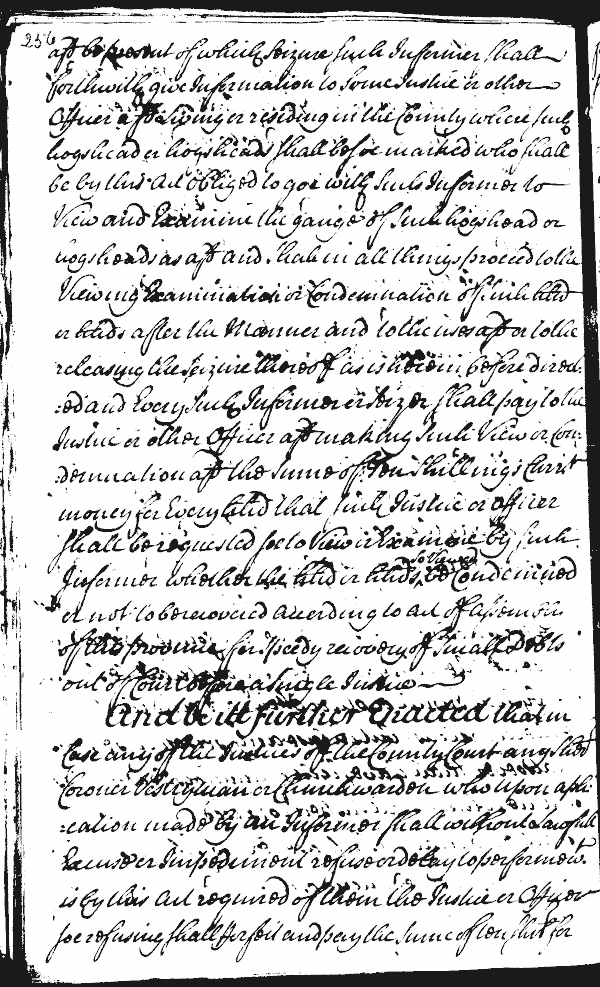 256
afd before out of which Seizure such Informer shall
forthwith give Information to some Justice or other
Officer afd Living or residing in the County where such
hogshead or hogsheads shall be soe marked who shall
be by this Act obliged to goe with such Informer to
View and Examine the gauge of such hogshead or
hogsheads as afd and shall in all things proceed to the
Viewing Examination or Condemnation of such hhd
or hhds after the Manner and to the uses afd or to the
releasing the Seizure thereof as is herein before direc:
:ed and Every such Informer or Seizer shall pay to the
Justice or other Officer afd making such View or Con:
:demnation afd the Sume of Ten Shillings Currt
money for Every hhd that such Justice or officer
shall be requested soe to View or Examine by such
Informer whether the hhd or hhds so Viewed be Condemned
or not to be recovered according to act of Assembly
of this province for speedy recovery of Small Debts
out of Court before a single Justice
And be itt further Enacted that in
Case any of the Justices of the County Court any Sherr
Coroner Vestryman or Churchwarden who upon apli:
:cation made by an Informer shall without Lawfull
Excuse or Impediment refuse or delay to performe wt
is by this Act required of them the Justice or Officer
soe refusing shall forfeit and pay the Sume of ten shill for